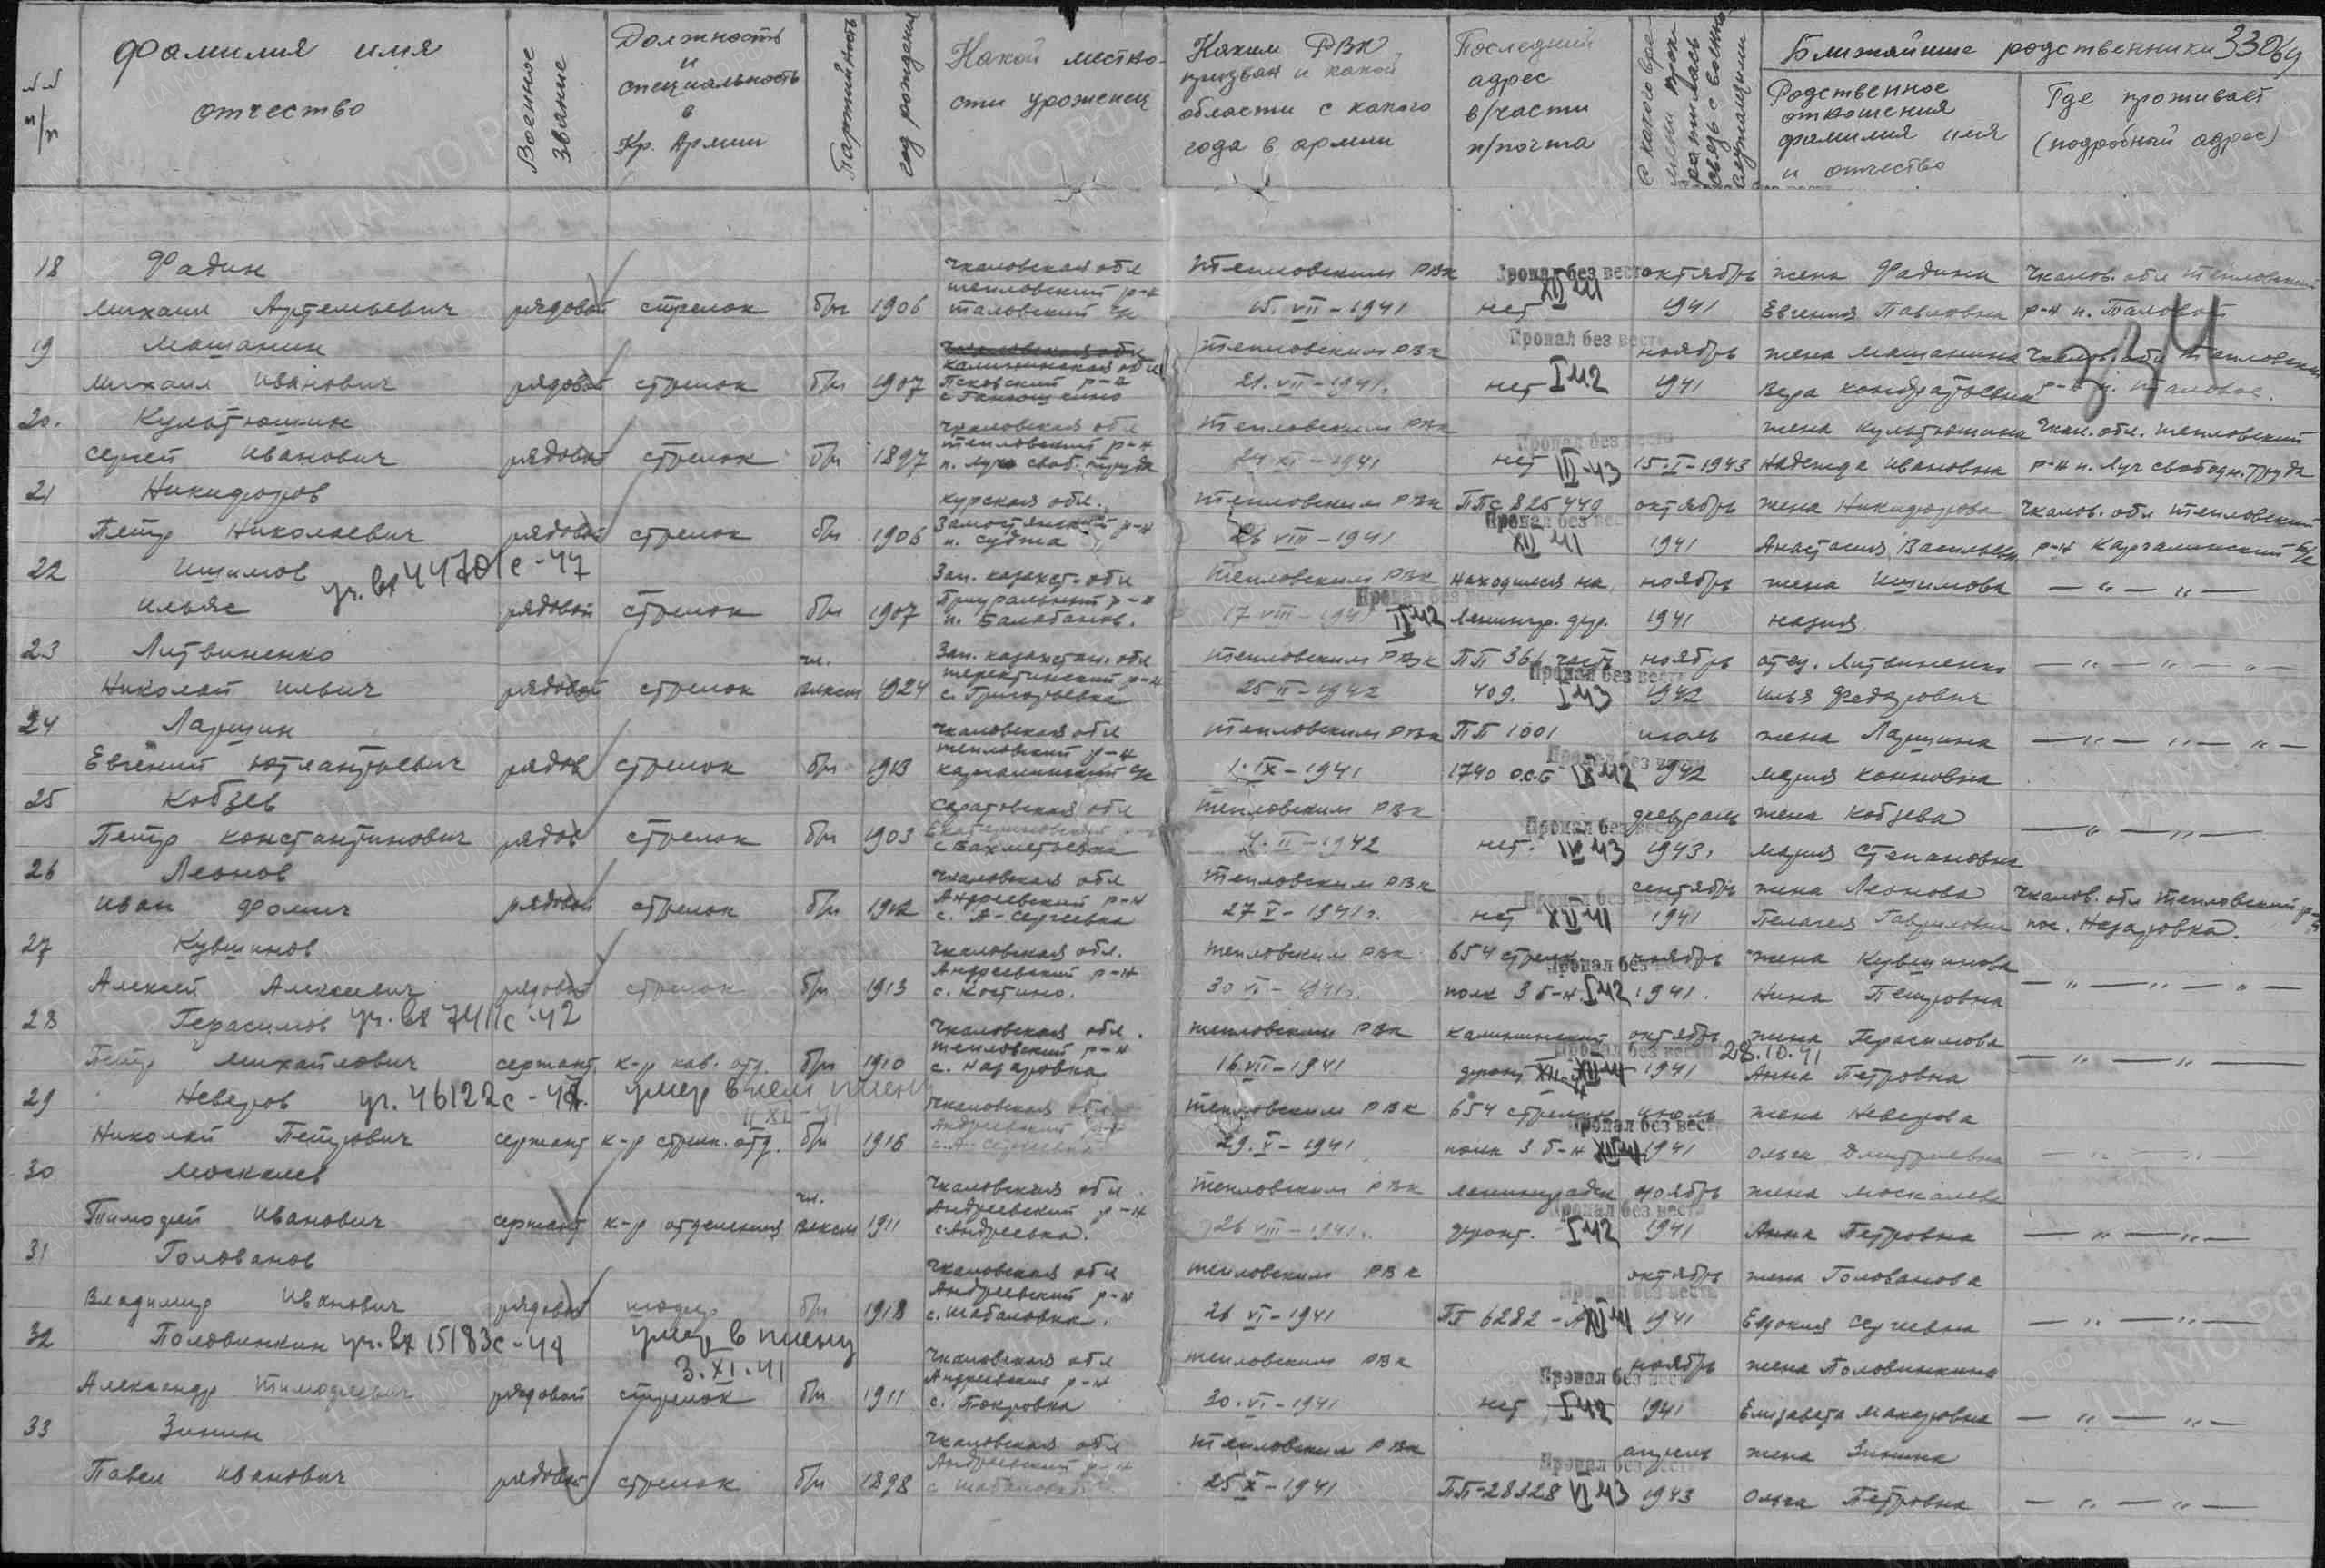 №№ п/п
Фамилия имя отчество
Военное звание
Должность и специальность в Кр. Армии
Партийность
год рождения
Какой местности уроженец
Каким РВК призван и какой области с какого года в армии
Последний адрес в/части п/почта
С какого времени прекратилась связь с военнослужащим
Ближайшие родственники
Родственное отношения фамилия имя и отчество
Где проживает (подробный адрес)
3306
18 Фадин Чкаловская обл Тепловским РВК Пропал без вести октябрь жена Фадина Чкалов. обл Тепловский
Михаил Артемьевич рядовой стрелок б/п 1906 тепловский р-н таловский с/с 15. VII – 1941 нет XII 41 1941 Евгения Павловна р-н п. Таловой
19 Машанин Тепловским РВК Пропал без вести ноябрь жена Машанина Чкалов. обл Тепловский
Михаил Иванович рядовой стрелок б/п 1907 калининская обл Псковский р-н 21. VII – 1941. нет I 42 1941 Вера Кондратьевна р-н п. Таловое.
334
20. Культюшин Чкаловская обл Тепловским РВК Пропал без вести жена Культюшина Чкал. обл. Тепловский
Сергей Иванович рядовой стрелок б/п 1897 тепловский р-н п. Луч своб. труда 24 XI – 1941 нет III-43 15-I-1943 Надежда Ивановна р-н п. Луч свободн. труда
21 Никифоров Курская обл. Тепловским РВК ППС 825 449 октябрь жена Никифорова Чкалов. обл Тепловский
Петр Николаевич рядовой стрелок б/п 1906 р-н п. Суджа 26 VIII – 1941 Пропал без вести XII 41 1941 Анастасия Васильевн. р-н Каргалинский с/с
22 Ишимов уч. вх 44701с-47 Зап. казахст. обл Тепловским РВК находился на ноябрь жена Ишимова — " — " —
Ильяс рядовой стрелок б/п 1907 Приуральный р-н 17 VIII – 1941 Пропал без вести II 42 Ленингр. фр. 1941
23 Литвиненко чл. Зап. казахстан. обл Тепловским РВК ПП 361 часть ноябрь отец. Литвиненко — " — " — " —
Николай Ильич рядовой стрелок влксм 1924 Теректинский р-н с. Григорьевка 25 II – 1942 409. Пропал без вести I 43 1942 Илья Федорович
24 Ларшин Чкаловская обл Тепловским РВК ПП 1001 июль жена Ларшина — " — " — " —
Евгений рядов стрелок б/п 1913 тепловский р-н каргалинский с/с 1. IX – 1941 1740 О.С.Б Пропал без вести IX 42 1942 Мария
25 Кобзев Саратовская обл Тепловским РВК февраль жена Кобзева — " — " —
Петр Константинович рядов стрелок б/п 1903 Екатериновский р-н с Бахметьевка 7. II – 1942 нет. Пропал без вести 43 1943. Мария Степановна
26 Леонов Чкаловская обл Тепловским РВК Пропал без вести сентябрь жена Леонова Чкалов. обл Тепловский р-н
Иван Фомич рядовой стрелок б/п 1912 Андреевский р-н с. А-Сергеевка 27 V – 1941г. нет XII 41 1941 Пелагея Гавриловна пос. Назаровка.
27 Кувшинов Чкаловская обл. Тепловским РВК 654 стрелк ноябрь жена Кувшинова — " — " — " —
Алексей Алексеевич рядовой стрелок б/п 1913 Андреевский р-н с. Костино. 30 VI – 1941г. полк 3 б-н Пропал без вести I 42 1941. Нина Петровна
28 Герасимов уч. вх 7411с-42 Чкаловская обл. Тепловским РВК калининский октябрь жена Герасимова
Петр Михайлович сержант к-р кав. отд. б/п 1910 тепловский р-н с. Назаровка 16 VII – 1941 фронт Пропал без вести 1941 28.10.41 Анна Петровна — " — " —
29 Неверов уч. 46122с умер в нем плену XI – 41 Чкаловская обл Тепловским РВК 654 стрелк июль жена Неверова
Николай Петрович сержант к-р стрелк. отд. б/п 1916 Андреевский р-н с. А-Сергеевка 29. V – 1941 полк 3 б-н Пропал без вести 1941 Ольга Дмитриевна — " — " —
30 Москалев чл. Чкаловская обл Тепловским РВК Ленинградск ноябрь жена Москалева
Тимофей Иванович сержант к-р отделения влксм 1911 Андреевский р-н с Андреевка. 26 VIII – 1941г. фронт. Пропал без вести I 42 1941 Анна Петровна — " — " —
31 Голованов Чкаловская обл Тепловским РВК октябрь жена Голованова
Владимир Иванович рядовой шофер б/п 1918 Андреевский р-н с. Шабановка. 26 VI – 1941 ПП 6282 – А Пропал без вести XII 41 1941 Евдокия Сергеевна — " — " —
32 Половинкин уч. вх 15183с-48 умер в плену 3.XI.41 Чкаловская обл Тепловским РВК ноябрь жена Половинкина
Александр Тимофеевич рядовой стрелок б/п 1911 Андреевский р-н с. Покровка 30. VI – 1941 нет Пропал без вести I 42 1941 Елизавета Макаровна — " — " —
33 Зинин Чкаловская обл Тепловским РВК апрель жена Зинина
Павел Иванович рядовой стрелок б/п 1898 Андреевский р-н с Шабановка 25 X – 1941 ПП-28228 Пропал без вести VI 43 1943 Ольга Петровна — " — " —